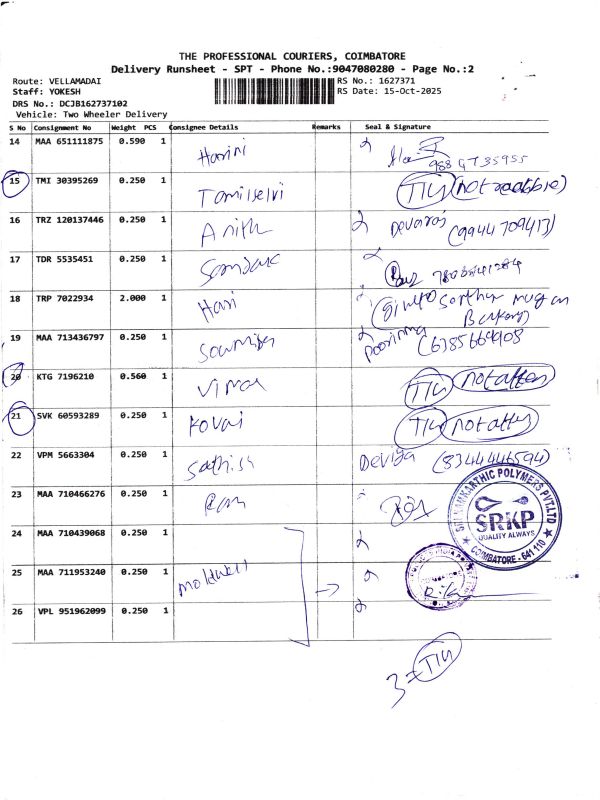 THE PROFESSIONAL COURIERS, COIMBATORE
Delivery Runsheet - SPT - Phone No.:9047080280 - Page No.:2
Route: VELLAMADAI
RS No.: 1627371
Staff: YOKESH
RS Date: 15-Oct-2025
DRS No.: DCJB162737102
Vehicle: Two Wheeler Delivery
S No Consignment No Weight PCS Consignee Details Remarks Seal & Signature
14 MAA 651111875 0.590 1 Harini
15 TMI 30395269 0.250 1 Tamilselvi TIU
16 TRZ 120137446 0.250 1 Anith Devaraj (9944709413)
17 TDR 5535451 0.250 1
18 TRP 7022934 2.000 1 Hari
19 MAA 713436797 0.250 1 Sowmiya Poornima
20 KTG 7196210 0.560 1 Vimal TIU
21 SVK 60593289 0.250 1 Kovai TIU
22 VPM 5663304 0.250 1 Sathish Deviga (8344446594)
23 MAA 710466276 0.250 1 Ram
24 MAA 710439068 0.250 1
25 MAA 711953240 0.250 1 Moldwell
26 VPL 951962099 0.250 1
POLYMERS PVT.LTD
SRKP
QUALITY ALWAYS
COIMBATORE - 641 110
3 = TIU